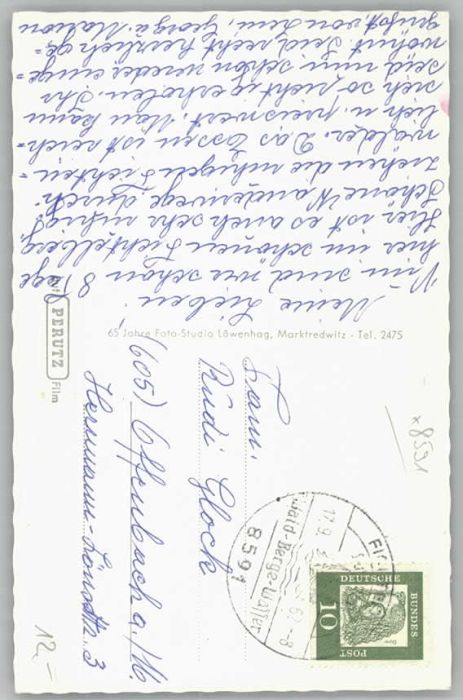 Meine Lieben!
Nun sind wir schon 8 Tage
hier im schönen Fichtelberg
Hier ist es auch sehr ruhig.
Schöne Wanderwege durch-
ziehen die ruhigen Fichten-
wälder. Das Essen ist reich-
lich u. preiswert. Man kann
sich so richtig erholen. Ihr
seid nun schon wieder einge-
wöhnt. Seid recht herzlich ge-
grüßt von Leni, Georg u. Marion
65 Jahre Foto-Studio Löwenhag, Marktredwitz - Tel. 2475
PERUTZ
Film
Fam.
Rudi Glock
(605) Offenbach a./M.
Hermann-Lönsstr. 3
17.9.
62-8
Wald-Berge-Wasser
8591
DEUTSCHE
BUNDES
POST
10
x 8591
12,-